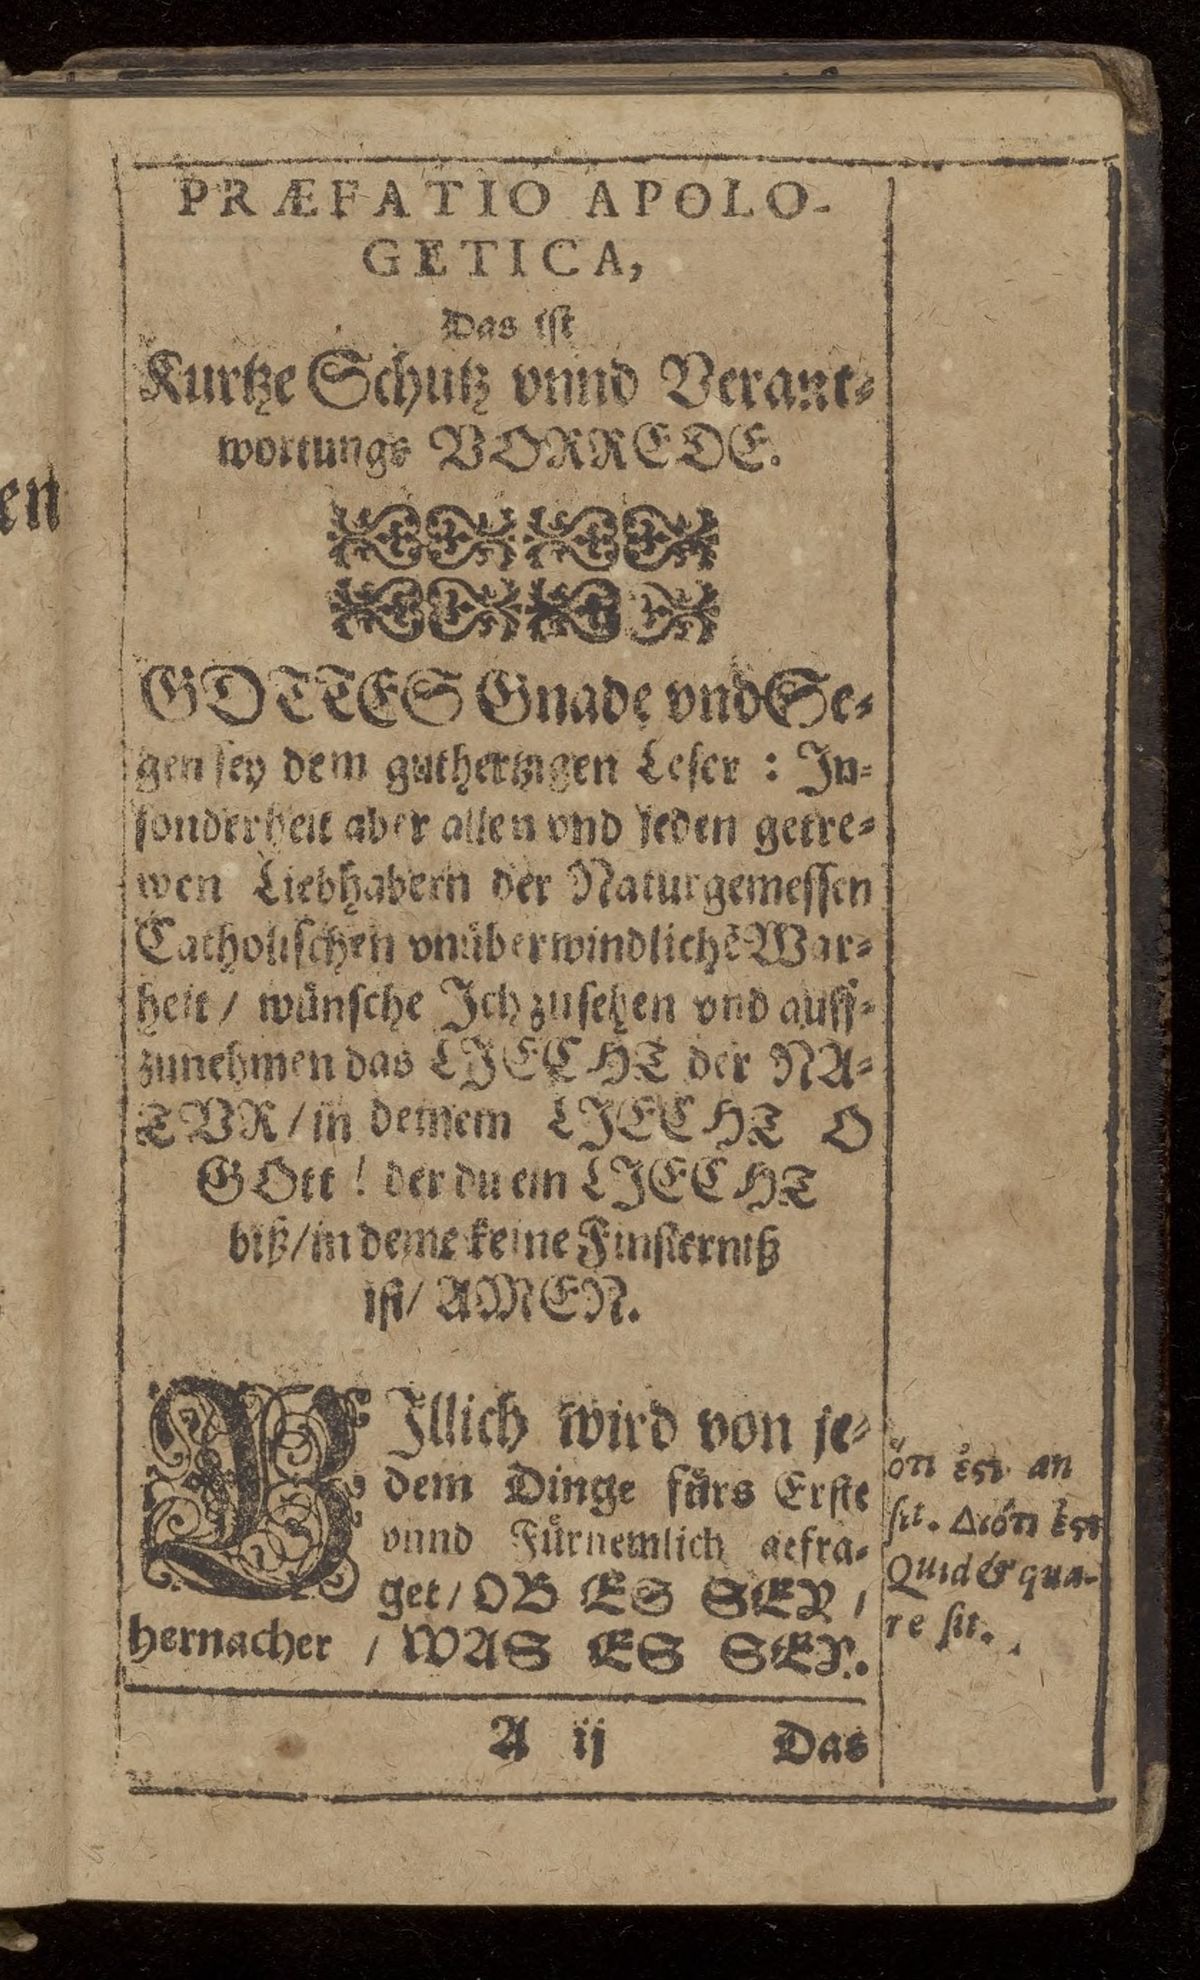 en
PRÆFATIO APOLO-
GETICA,
Das ist
Kurtze Schutz vnnd Verant-
wortungs VORREDE.
GOTTES Gnade vnd Se-
gen sey dem guthertzigen Leser : In-
sonderheit aber allen vnd jeden getre-
wen Liebhabern der Naturgemessen
Catholischen vnüberwindlichẽ War-
heit / wünsche Ich zusehen vnd auff-
zunehmen das LIECHT der NA-
TVR / in deinem LIECHT O
GOtt ! der du ein LIECHT
biß / in deme keine Finsterniß
ist / AMEN.
BIllich wird von je-
dem Dinge fürs Erste
vnnd Fürnemlich gefra-
get / OB ES SEY /
hernacher / WAS ES SEY.
ὅτι ἐστι an
sit. Διότι ἐστι
Quid & qua-
re sit.
A ij Das